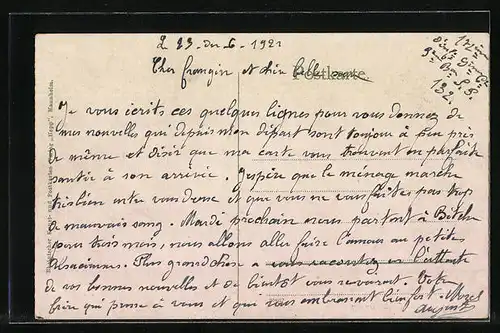 Le 23 du 6 1921
Postkarte
Cher frangin et chère belle sœur
Je vous écrits ces quelques lignes pour vous donnez de
mes nouvelles qui depuis mon départ sont toujour à peu près
de même et désir que ma carte vous trouvent en parfaite
santée à son arrivée. J'espère que le ménage marche
très bien entre vous deux et que vous ne vous faite pas trop
de mauvais sang. Mardi prochain nous partont à Bitche
pour trois mois, nous allons aller faire l'amour au petites
Plus grand chose a vous racontez en l'attente
de vos bonnes nouvelles et de bientôt vous revoir. Votre
frère qui pense à vous et qui vous embrassent bien fort.
132